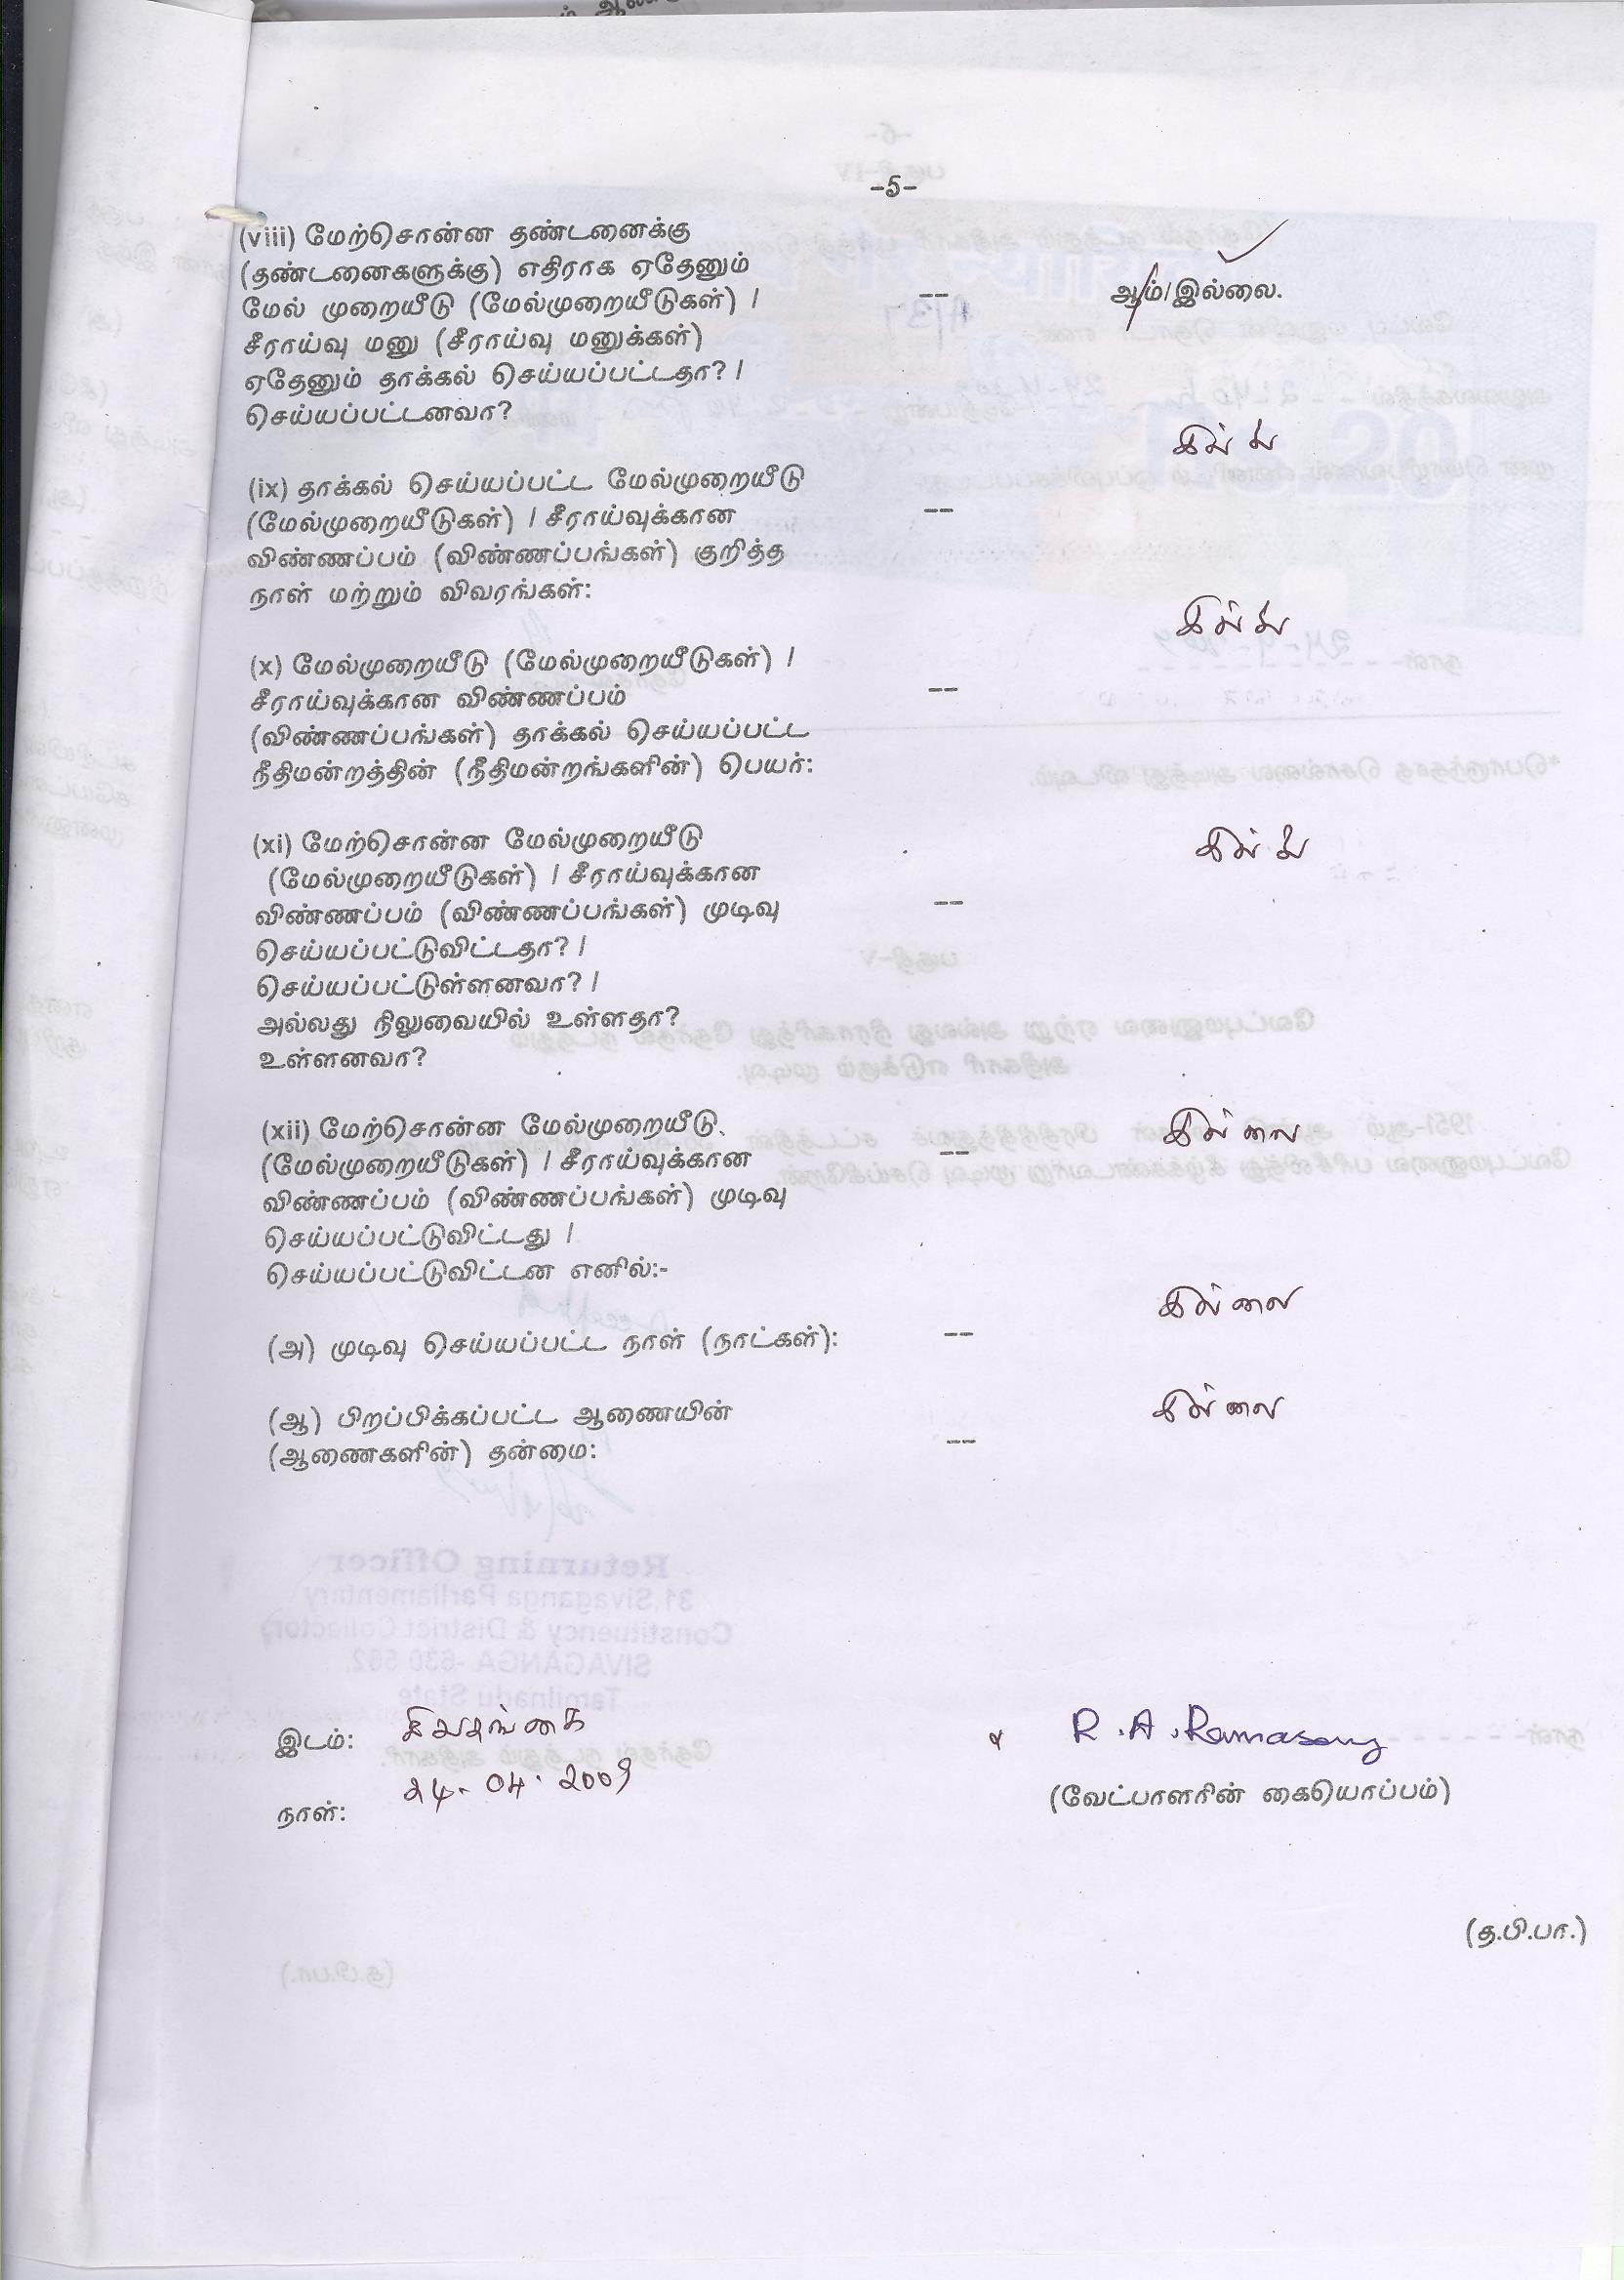 -5-
(viii) மேற்சொன்ன தண்டனைக்கு
(தண்டனைகளுக்கு) எதிராக ஏதேனும்
மேல் முறையீடு (மேல்முறையீடுகள்) / -- ஆம்/இல்லை.
சீராய்வு மனு (சீராய்வு மனுக்கள்)
ஏதேனும் தாக்கல் செய்யப்பட்டதா? /
செய்யப்பட்டனவா?
(ix) தாக்கல் செய்யப்பட்ட மேல்முறையீடு
(மேல்முறையீடுகள்) / சீராய்வுக்கான --
விண்ணப்பம் (விண்ணப்பங்கள்) குறித்த
நாள் மற்றும் விவரங்கள்:
(x) மேல்முறையீடு (மேல்முறையீடுகள்) /
சீராய்வுக்கான விண்ணப்பம் --
(விண்ணப்பங்கள்) தாக்கல் செய்யப்பட்ட
நீதிமன்றத்தின் (நீதிமன்றங்களின்) பெயர்:
(xi) மேற்சொன்ன மேல்முறையீடு
(மேல்முறையீடுகள்) / சீராய்வுக்கான
விண்ணப்பம் (விண்ணப்பங்கள்) முடிவு --
செய்யப்பட்டுவிட்டதா? /
செய்யப்பட்டுள்ளனவா? /
அல்லது நிலுவையில் உள்ளதா?
உள்ளனவா?
(xii) மேற்சொன்ன மேல்முறையீடு. இல்லை
(மேல்முறையீடுகள்) / சீராய்வுக்கான --
விண்ணப்பம் (விண்ணப்பங்கள்) முடிவு
செய்யப்பட்டுவிட்டது /
செய்யப்பட்டுவிட்டன எனில்:-
இல்லை
(அ) முடிவு செய்யப்பட்ட நாள் (நாட்கள்): --
(ஆ) பிறப்பிக்கப்பட்ட ஆணையின் இல்லை
(ஆணைகளின்) தன்மை: --
இடம்: சிவகங்கை R.A.Ramasamy
நாள்: 24-04.2009 (வேட்பாளரின் கையொப்பம்)
(த.பி.பா.)